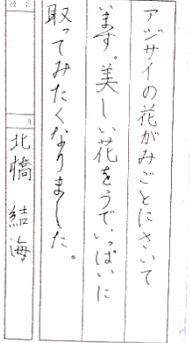 アジサイの花がみごとにさいて
います。美しい花をうでいっぱいに
取ってみたくなりました。
北橋 結海